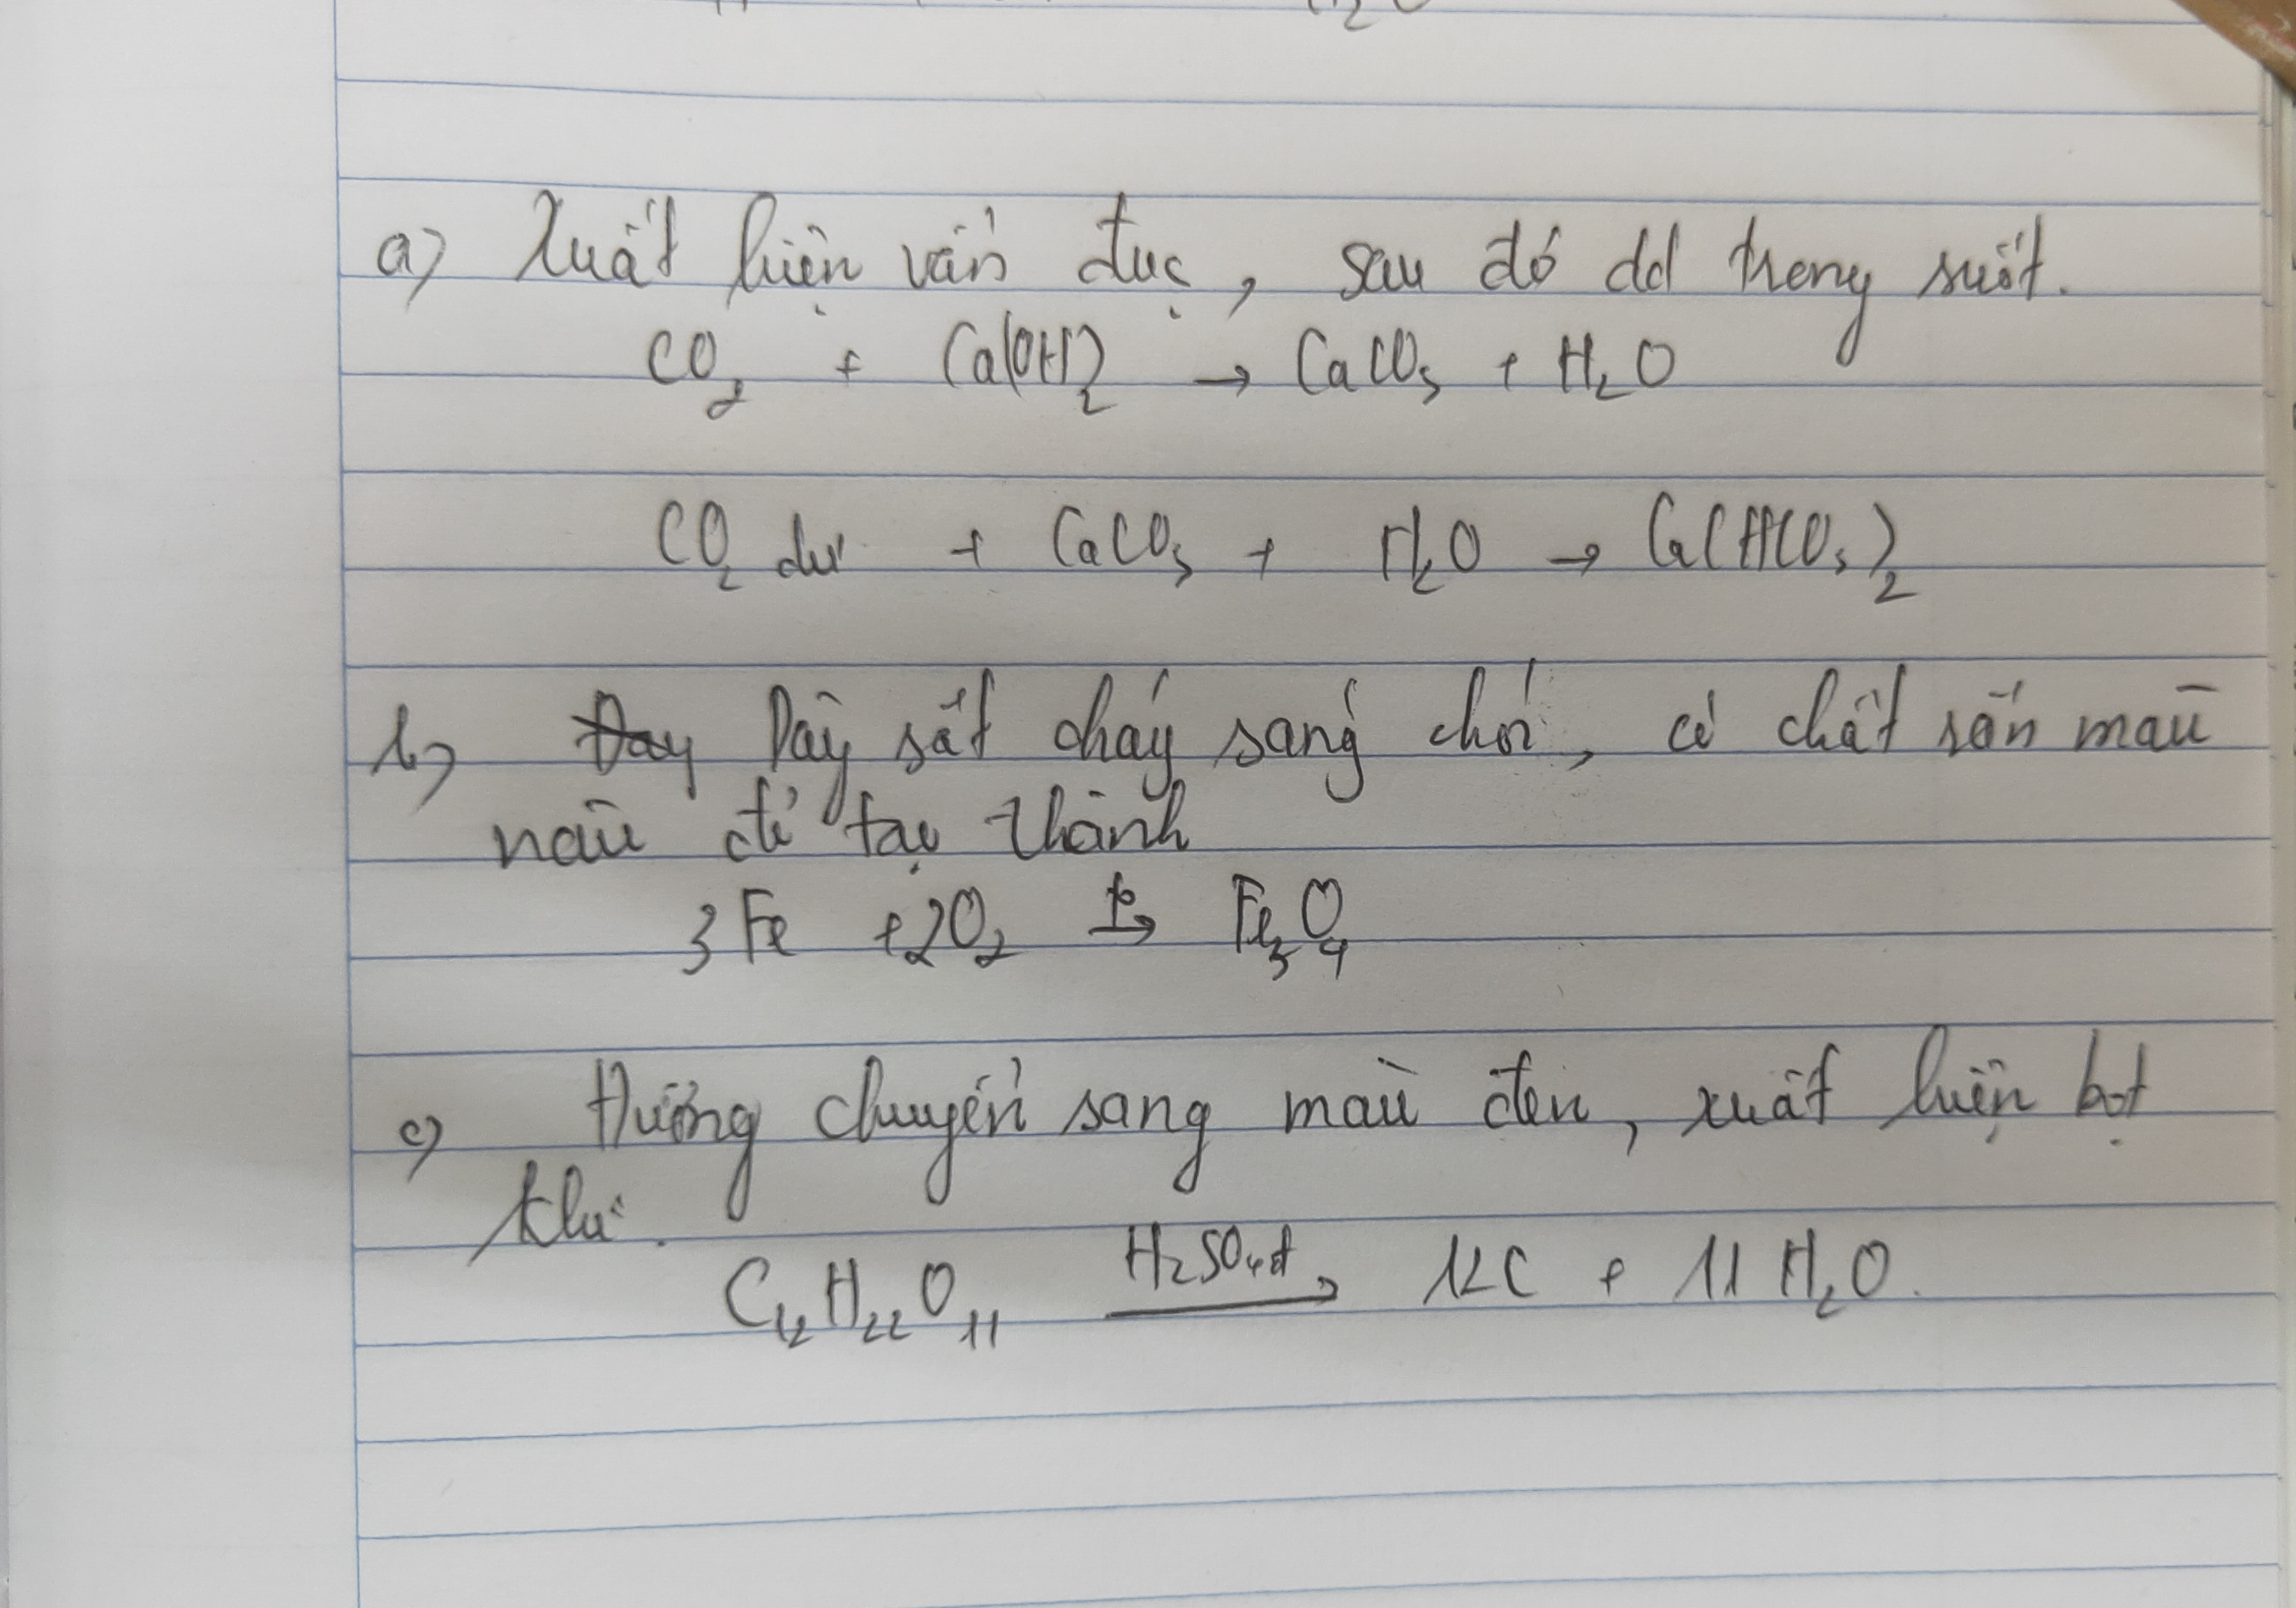 a) Xuất hiện vẩn đục, sau đó dd trong suốt.
CO₂ + Ca(OH)₂ → CaCO₃ + H₂O
CO₂ dư + CaCO₃ + H₂O → Ca(HCO₃)₂
b) Dây sắt cháy sáng chói, có chất rắn màu
nâu đỏ tạo thành
3Fe + 2O₂ t°→ Fe₃O₄
c) Đường chuyển sang màu đen, xuất hiện bọt
khí.
C₁₂H₂₂O₁₁ H₂SO₄đ→ 12C + 11H₂O.